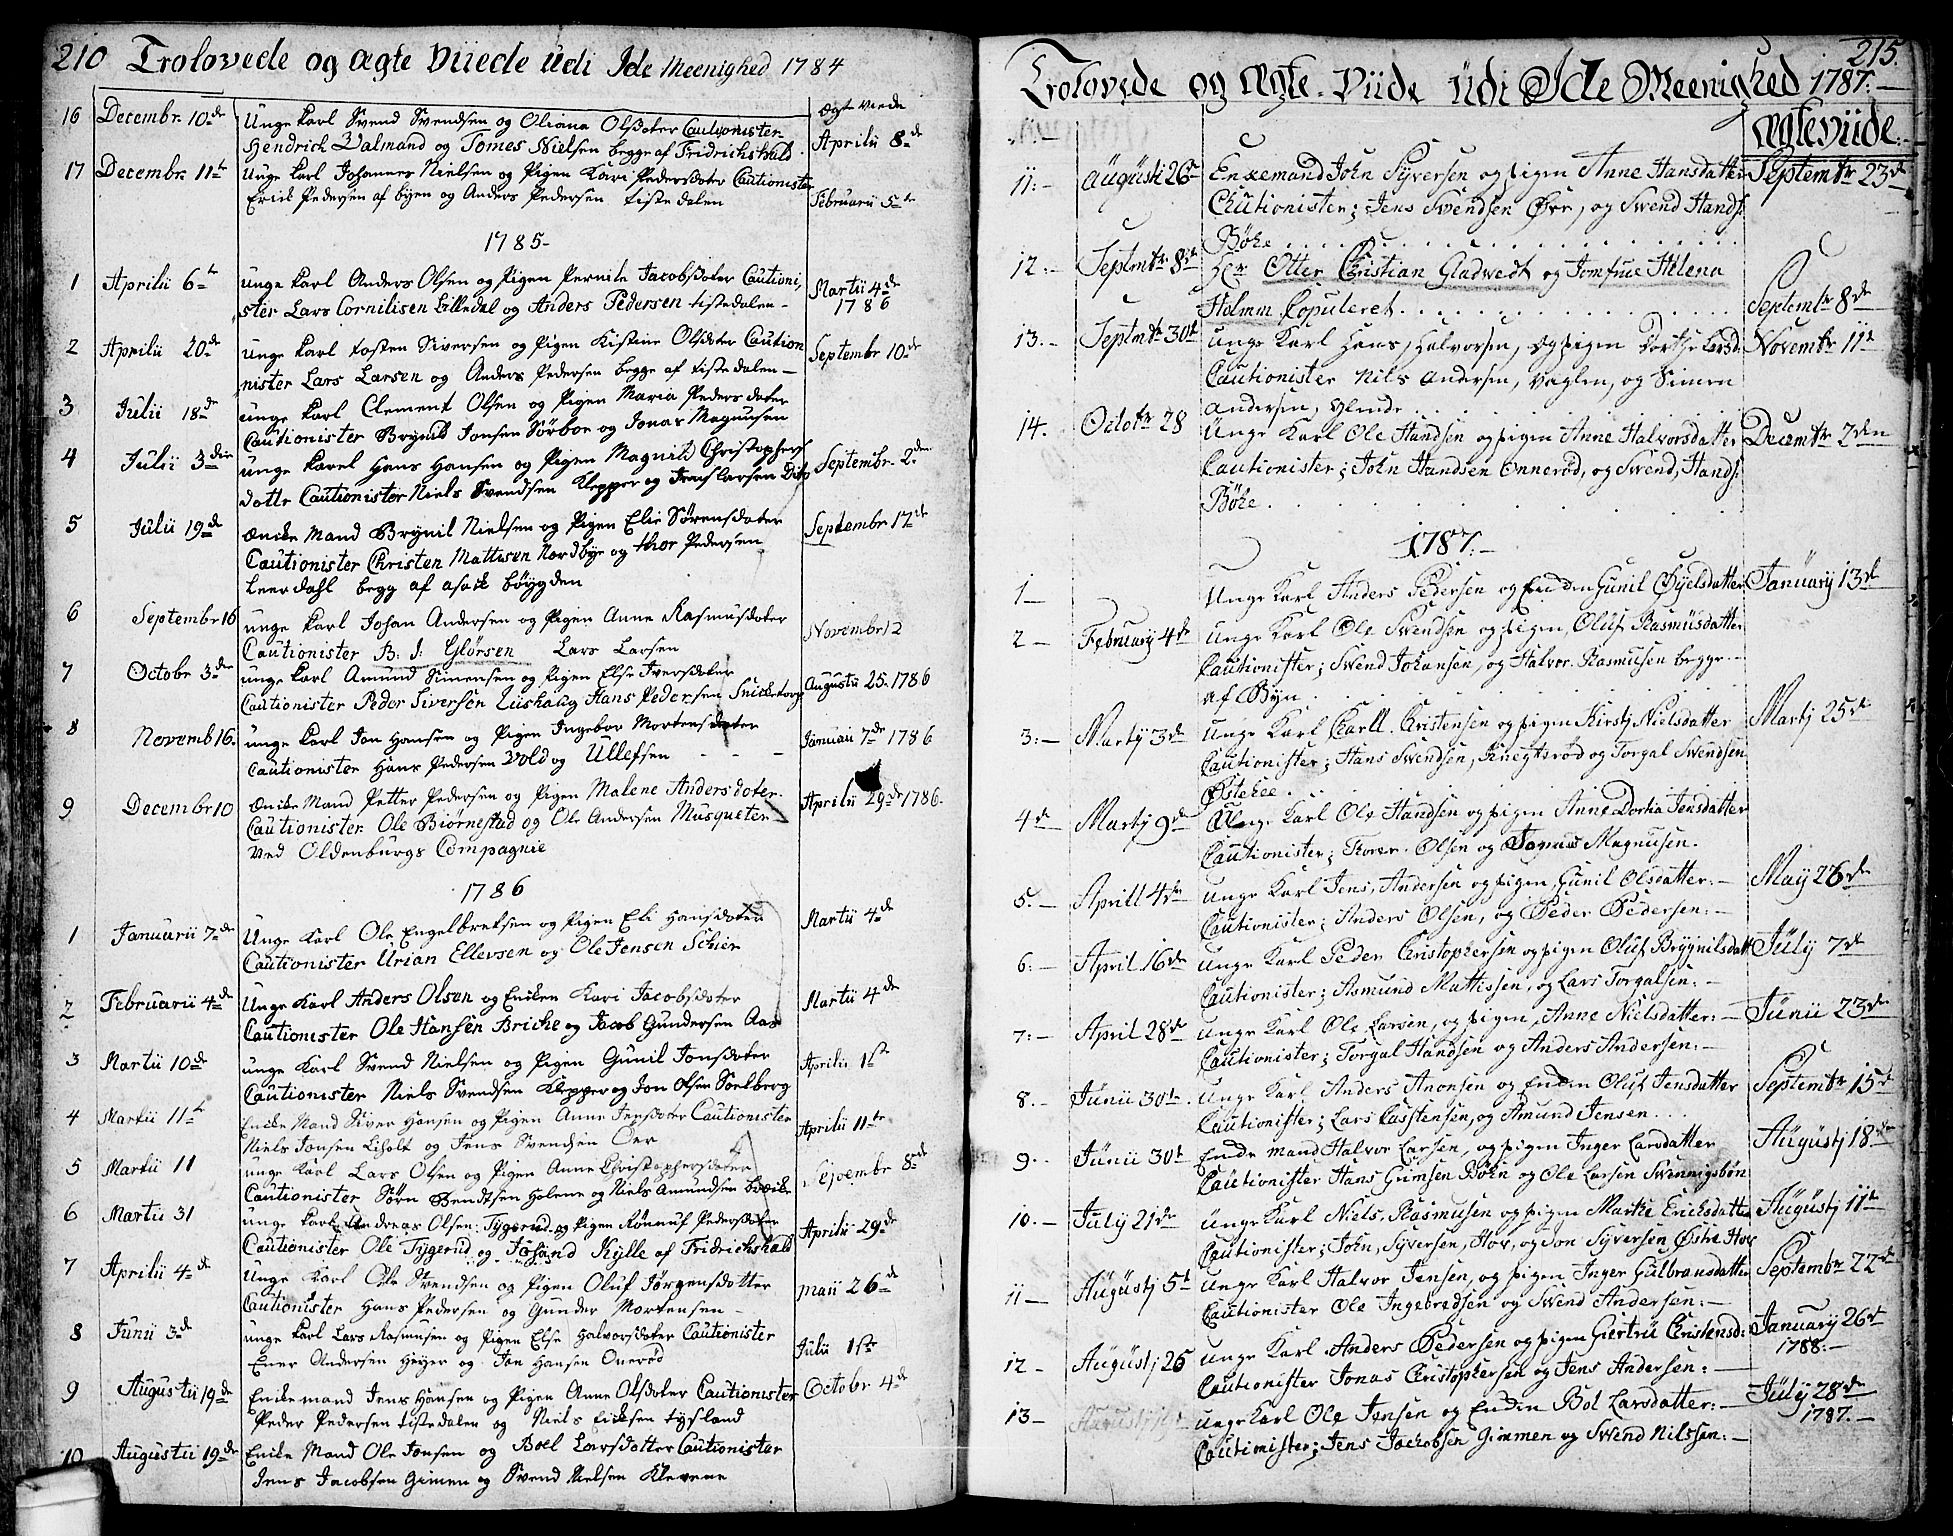 210 Trolovede og ægte Viiede udi Ide Meenighed 1784
Ægte viede
16 Decembr 10de Unge karl Svend Svendsen og Oliana Olsdoter Cautionister
Hendrich Valmand og Tomes Nielsen begge af Fridrichshald. Aprilii 8de
17 Decembr 11te Unge karl Johannes Nielsen og Pigen Kari Pedersdoter Cautionister
Erich Pedersen af byen og Anders Pedersen tistedalen Februarii 5te
1785-
1 Aprilii 6te unge karl Anders Olsen og Pigen Pernile Jacobsdoter Cautioni,
ster Lars Cornilisen Lilledal og Anders Pedersen tistedalen- Martii 4de 1786
2 Aprilii 20de unge karl tosten Siversen og Pigen Kistine Olsdoter Caution
nister Lars Larsen og Anders Pedersen begge af tistedalen- Septembr 10de
3 Julii 18de unge karl Clement Olsen og Pigen Maria Pedersdoter
Cautionister Brynild Jonsen Sørboe og Jonas Magnusen
4 Julii 3die unge karel Hans Hansen og Pigen Magnild Christophers
dotte Cautionister Niels Svendsen Klepper og Jens Larsen Dito Septembr. 2den
5 Julii 19de Encke Mand Brynil Nielsen og Pigen Elie Sørensdoter
Cautionister Christen Mattisen Nordbye og thor Pedersen
Leerdahl begg af asack bøygden Septembr 17de
6 Septembr 16 unge karl Johan Andersen og Pigen Anne Rasmusdoter
Cautionister B. J: Glørsen Lars Larsen Novembr 12
7 Octobr 3de unge karl Amund Simensen og Pigen Else Iversdoter
Cautionister Peder Siversen Liishaug Hans Pedersen Snicketorp Augustii 25. 1786
8 Novemb 16. unge karl Jon Hansen og Pigen Ingebor Mortensdoter
Cautionister Hans Pedersen Vold og Ullefsen Januari 7de 1786
9 Decembr 10 Encke Mand Petter Pedersen og Pigen Malene Andersdoter.
Cautionister Ole Biørnestad og Ole Andersen Musqueter
Ved Oldenburgs Compagnie Aprilii 29de 1786.
1786
1 Januarii 7de Unge Karl Ole Engelbretsen og Pigen Eli Hansdoter
Cautionister Urian Ellevsen og Ole Jensen Schier Martii 4de
2 Februarii 4de Unge Karl Anders Olsen og Encken Kari Jacobsdoter
Cautionister Ole Hansen Bricke og Jacob Gundersen Aas Martii 4de
3 Martii 10de unge Karl Svend Nielsen og Pigen Gunil Jonsdoter
Cautionister Niels Svendsen Klepper og Jon Olsen Soelberg Aprilii 1ste
4 Martii 11te Encke Mand Siver Hansen og Pigen Anne Jensdoter Cautionister
Niels Jonsen Liholt og Jens Svendsen Oer Aprilii 11te
5 Martii 11 unge Karl Lars Olsen og Pigen Anne Christophersdoter
Cautionister Sørn Bendtsen Holene og Niels Amundsen 8de
6 Martii 31 unge karl Andreas Olsen Tygerud og Pigen Rønnuf Pedersdoter
Cautionister Ole Tygerud og Johand Kylle af Fridrichshald Aprilii 29de
7 Aprilii 4de Unge Karl Ole Svendsen og Pigen Oluf Jørgensdotter
Cautionister Hans Pedersen og Gunder Mortensen Maii 26de
8 Junii 3de unge karl Lars Rasmusen og Pigen Else Halvorsdoter Cautionister
Ener Andersen Heyer og Jon Hansen Onerød Julii 1ste
9 Augustii 19de Enckemand Jens Hansen og Pigen Anne Olsdoter Cautionister
Peder Pedersen tistedalen og Niels Ericksen tysland Octobr 4de
10 Augustii 19de Encke Mand Ole Jonsen og Boel Larsdotter Cautionister
Jens Jacobsen Gimen og Svend Nielsen Klevene
215.
Trolovede og Ægte-Viide udi Ide Meenighed 1787:-
Ægteviide:
11:- Augusti 26de Enkemand John Syversen og pigen Anne Hansdatter Septembr 23de
Cautionister; Jens Swendsen Øer, og Swend Hands:
Böhe
12:- Septmbr 8de Hr Otter Christian Gladwedt og Jomfrue Helena
Holmm. Copuleret Septembr 8de
13.- Septmbr 30te Unge Karl Hans, Halvorsen, og pigen Dorthe Larsd: Novembr 11te
Cautionister Nils Andersen, Vaglen, og Simen
Andersen,
14. Octobr 28 Unge Karl Ole Handsen og pigen Anne Halvorsdatter Decembr 2den
Cautionister; John Handsen Onnerød, og Swend, Hands:
Böhe
1787:-
1- Unge Karl Anders Pedersen og Enken Gunil Øyelsdatter Januarij 13de
2- Februarij 4de Unge Karl Ole Swendsen og pigen, Oluf Rasmusdatter
Cautionister; Swend Johansen, og Halvor Rasmusen begge
af Byn
3:- Martij 3de Unge Karl Carll Cristensen og pigen Kirstj Nielsdatter Martj 25de
Cautionister; Hans Swendsen, Kneytsrød og Torgal Swendsen
Østebee
4de Martij 9de Unge Karl Ole Handsen og pigen Anne Dortia Jensdatter
Cautionister; Torer Olsen og Jonas Magnusen.
5.- Aprill 4de Unge Karl Jens, Andersen og pigen Gunil Olsdatter:- Maij 26de
Cautionister; Anders Olsen, og Peder Pedersen:-
6:- April 16de unge Karl Peder Christophersen og pigen Oluf Brygnilsdatt July 7de
Cautionister; Asmund Mattissen, og Lars Torgalsen:-
7:- April 28de unge Karl Ole Larsen, og pigen, Anne Nielsdatter:- Junii 23de
Cautionister; Torgal Handsen og Anders Andersen:-
8.- Junii 30te. Unge Karl Anders Anonsen og Enken Oluf Jensdatter Septembr 15de
Cautionister; Lars Carstensen, og Amund Jensen
9.- Junii 30te Enke mand Halvor Larsen, og pigen Inger Larsdatter Augustj 18de
Cautionister Hans Gumsen Böhn og Ole Larsen Swennigsbön
10.- July 21de unge Karl Niels, Rasmusen og pigen Marthe Ericksdatter Augustj 11te
Cautionister; John, Syversen, Hov, og Jon Syversen Østre Hov
11- Augustj 5te unge Karl Halvor Jensen, og pigen Inger Gulbrandsdatter Septembr 22de
Cautionister Ole Ingebredsen og Swend Andersen:-
12- Augustj 26 unge Karl Anders Pedersen og pigen Giertru Cristensd: Januarij 26de 1788:-
Cautionister Jonas Christophersen og Jens Andersen:-
13- Augustij 19de unge Karl Ole Jensen og Enken Bol Larsdatter:- July 28de 1787.-
Cautionister; Jens Jackobsen Gimmen og Swend Nilssen:-